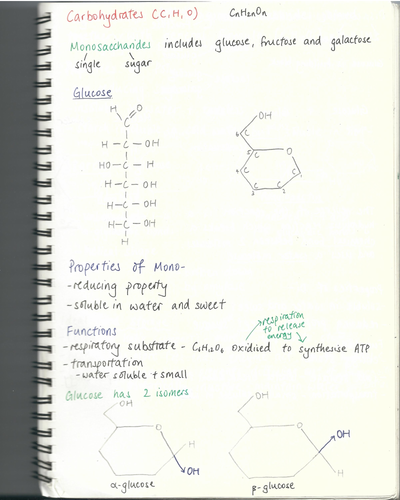 Carbohydrates (C, H, O) CnH2nOn
Monosaccharides includes glucose, fructose and galactose
single sugar
Glucose
H O
C
H - C - OH
HO - C - H
H - C - OH
H - C - OH
H - C - OH
H
OH
6 C
5 C O
4 C C 1
C C
3 2
Properties of Mono-
- reducing property
- soluble in water and sweet
Functions
respiration
to release
energy
- respiratory substrate - C6H12O6 oxidised to synthesise ATP
- transportation
- water soluble + small
Glucose has 2 isomers
OH
O
H
OH
α-glucose
OH
O
OH
H
β-glucose